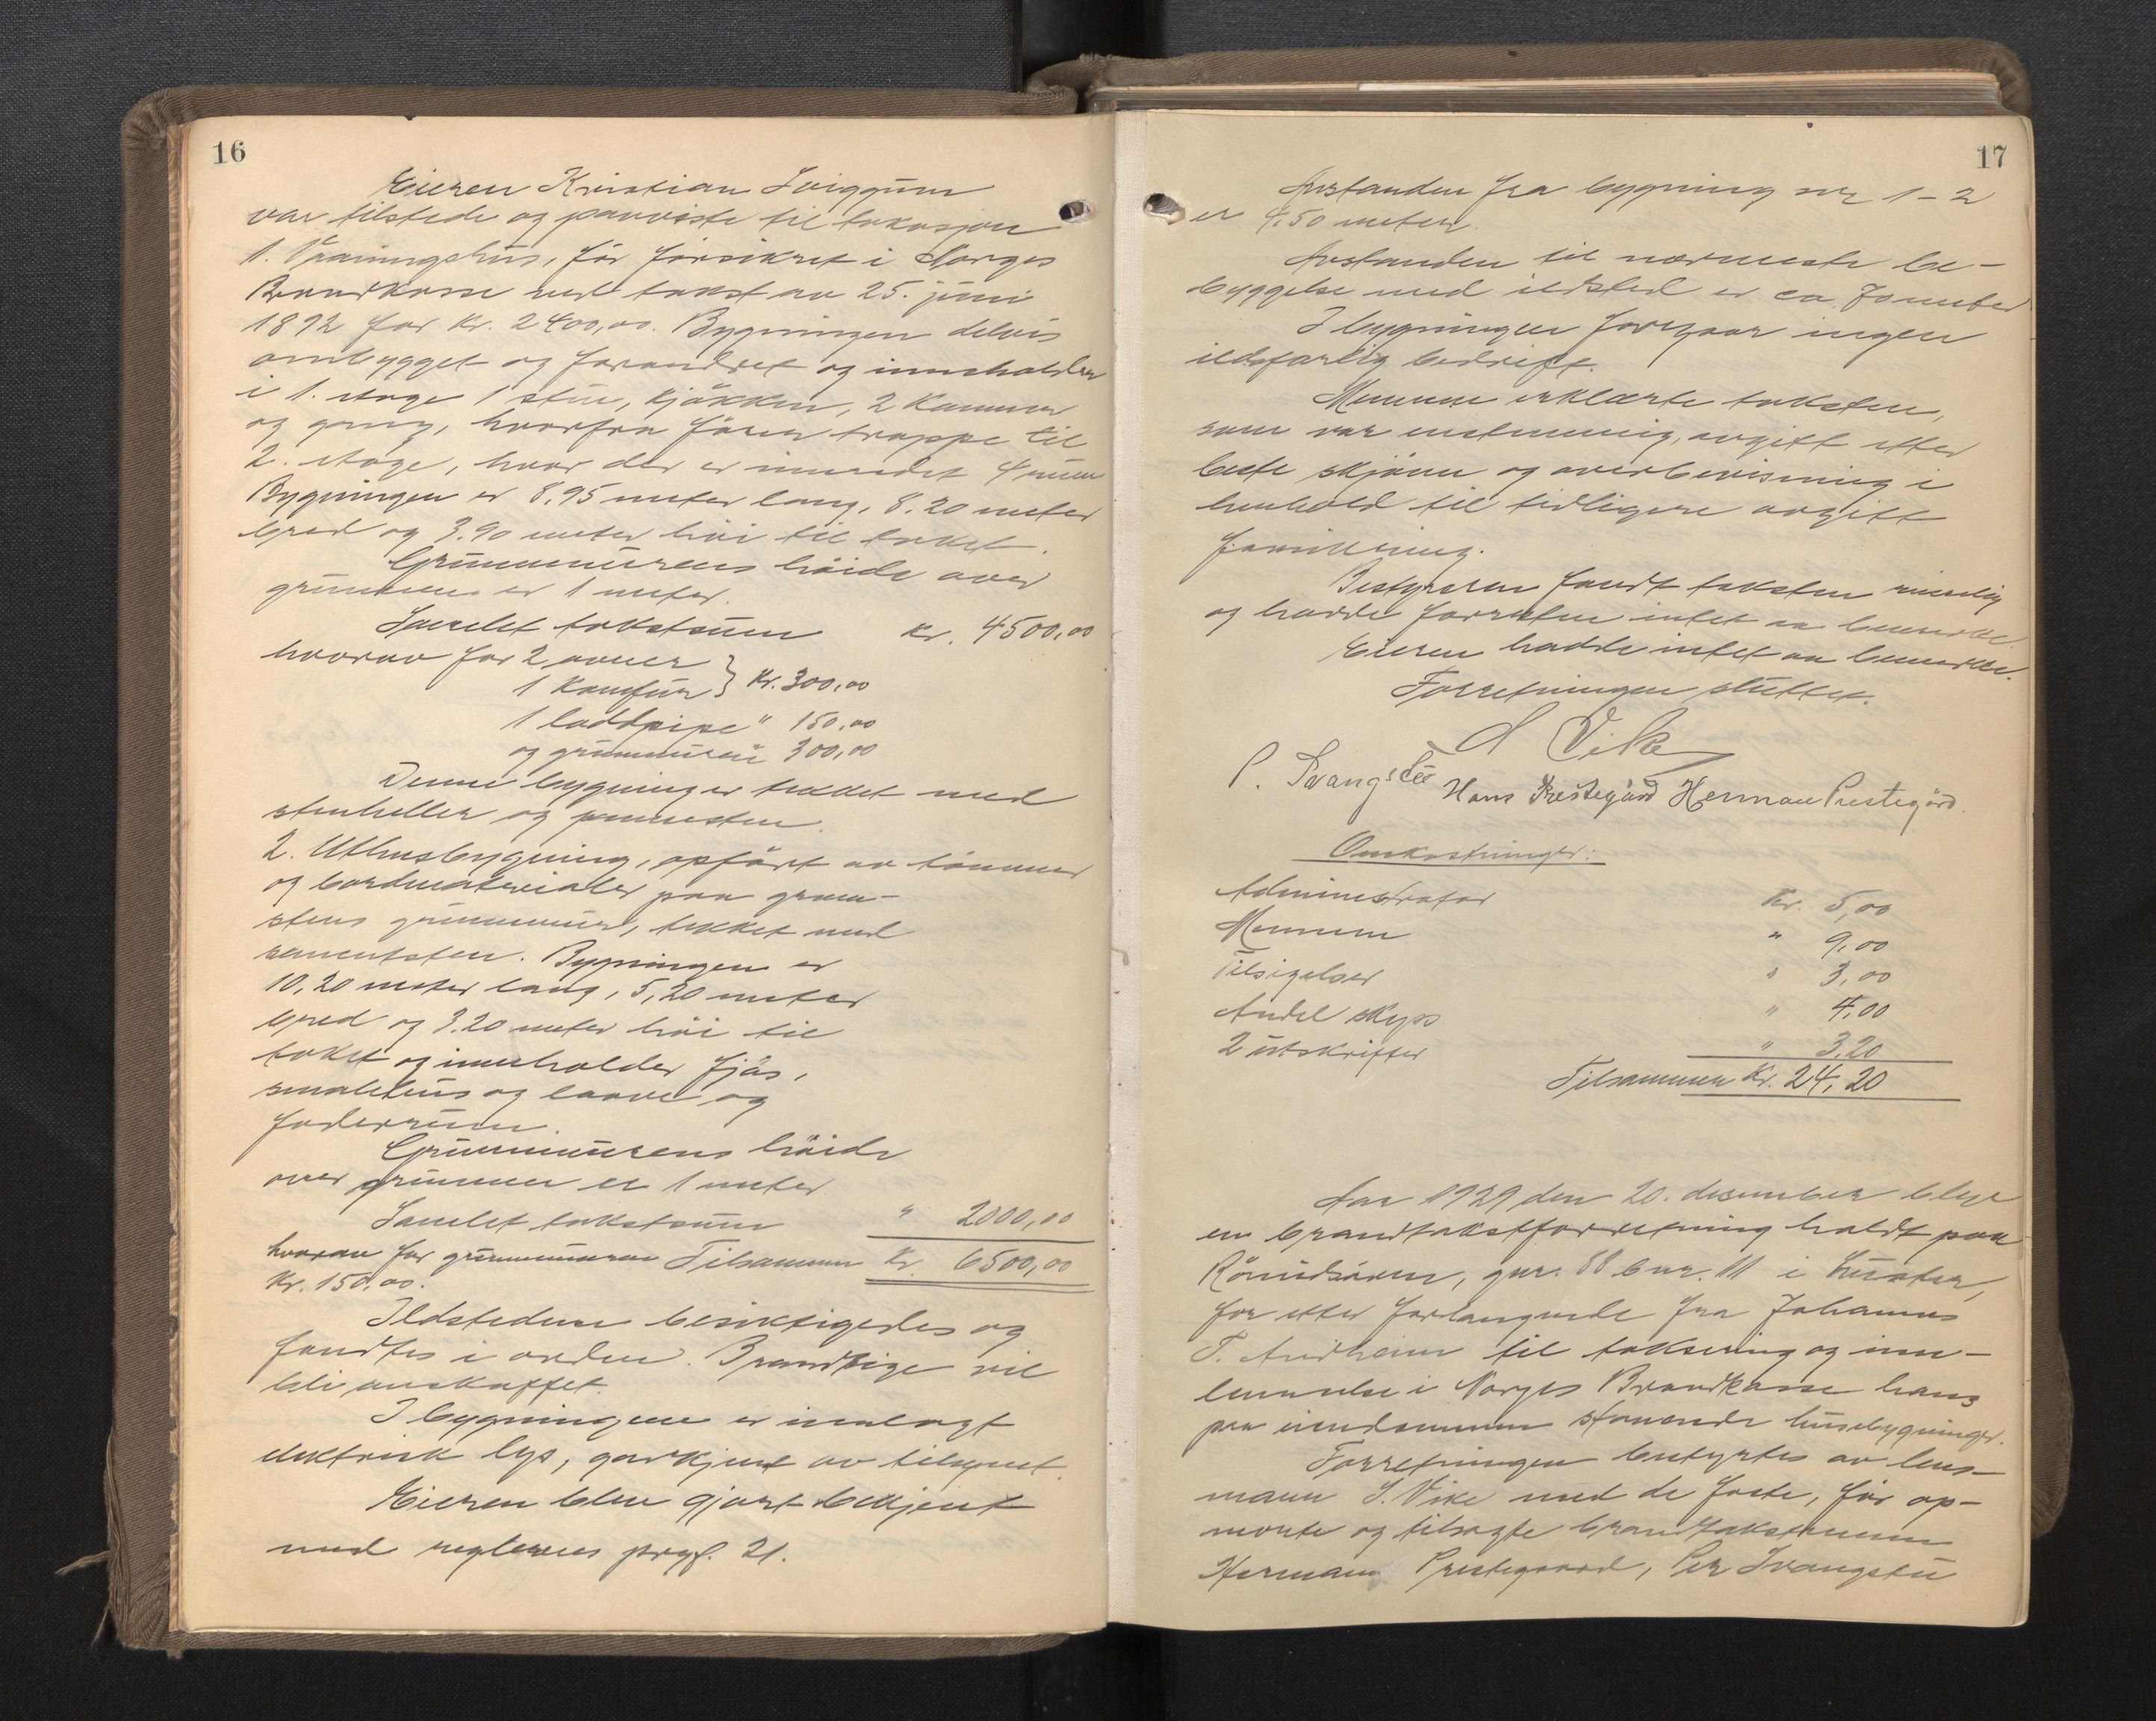 16
Eieren Kristian Sviggum
var tilstede og paaviste til taksasjon
1. Vaaningshus, før forsikret i Norges
Brandkasse ved takst av 25. juni
1892 for kr. 2400,00. Bygningen delvis
ombygget og forandret og inneholder
i 1. etage 1 stue, kjøkken, 2 kammer
og gang, hvorfra fører trappe til
2. etage, hvor der er innredet 4 rum
Bygningen er 8,95 meter lang, 8.20 meter
bred og 3.90 meter høi til taket.
Grunnmurens høide over
grunnen er 1 meter.
Samlet takstsum kr. 4500,00
hvorav for 2 ovner
1 komfur } kr. 300,00
1 loddpipe " 150,00
og grunnmuren " 300,00
Denne bygning er tekket med
stenheller og pannesten.
2. Uthusbygning, opført av tømmer
og bordmaterialer paa graa-
stens grunnmur, tekket med
sementsten. Bygningen er
10,20 meter lang, 5,20 meter
bred og 3.20 meter høi til
taket og inneholder fjøs,
smalehus og laave og
foderrum.
Grunnmurens høide
over grunnen er 1 meter
Samlet takstsum " 2000,00
hvorav for grunnmuren Tilsammen kr. 6500,00
kr. 150,00.
Ildstedene besiktigedes og
fandtes i orden. Brandstige vil
bli anskaffet.
I bygningene er innlagt
elektrisk lys, godkjent av tilsynet.
Eieren blev gjort bekjent
med reglenes prgf. 21.
17
Avstanden fra bygning nr 1 - 2
er 4,50 meter.
Avstanden til nærmeste be-
byggelse med ildsted er ca. 70 meter
I bygningen foregaar ingen
ildsfarlig bedrift.
Mennene erklærte taksten,
som var enstemmig, avgitt efter
beste skjønn og overbevisning i
henhold til tidligere avgitt
forsikring.
Bestyreren fandt taksten rimelig
og hadde forresten intet aa bemerke.
Eieren hadde intet aa bemerke.
Forretningen sluttet.
S Vike
P. Svangstu Hans Prestegård Herman Prestegård.
Omkostninger:
Administrator Kr. 5,00
Mennene " 9,00
Tilsigelser " 3,00
Andel skyss " 4,00
2 utskrifter " 3,20
Tilsammen kr. 24,20
Aar 1929 den 20. desember blev
en brandtakstforretning holdt paa
gnr. 88 bnr. 11 i Luster,
for efter forlangende fra Johannes
T. til taksering og inn-
lemmelse i Norges Brandkasse hans
paa eiendommen staaende husebygninger.
Forretningen bestyrtes av lens-
mann S. Vike med de faste, før op-
nevnte og tilsagte brandtakstmenn
Hermann Prestegaard, Per Svangstu